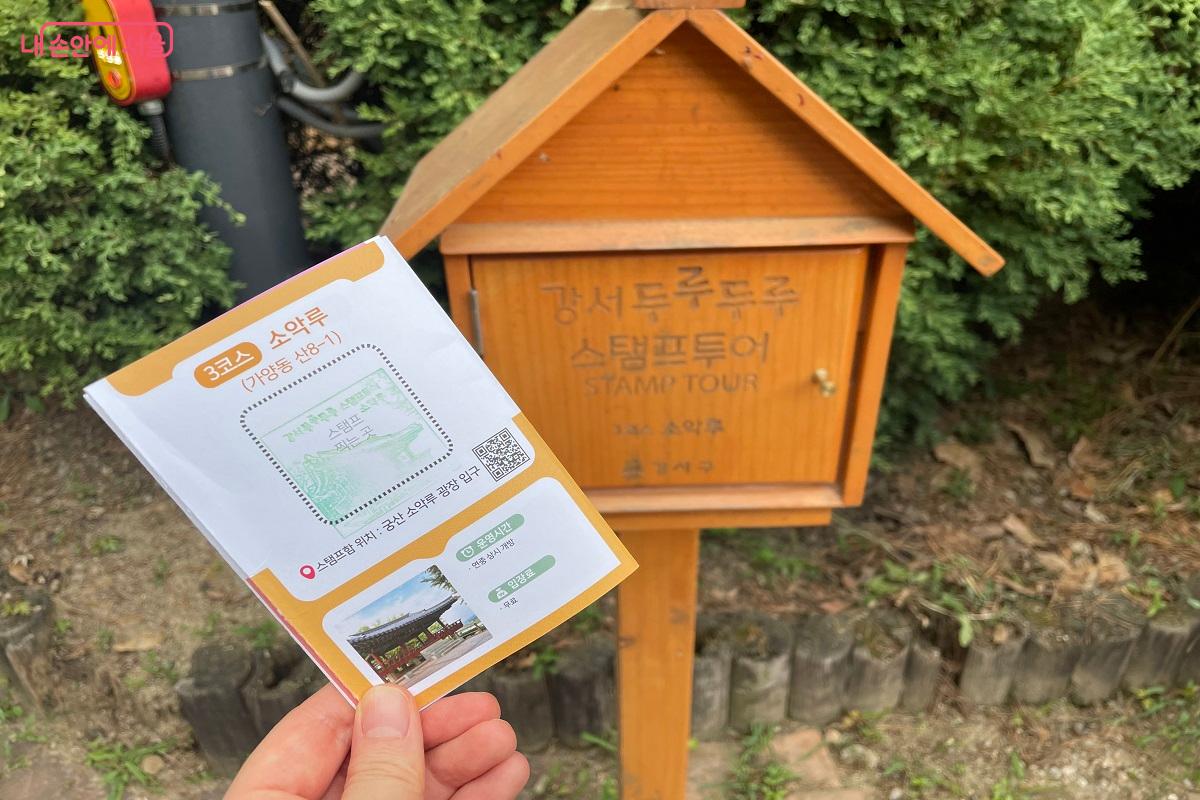 내 손안에 서울
3코스 소악루
(가양동 산8-1)
강서두루두루 스탬프투어 소악루
스탬프
찍는 곳
스탬프함 위치 : 궁산 소악루 광장 입구
운영시간
· 연중 상시 개방
입장료
· 무료
강서두루두루
스탬프투어
STAMP TOUR
3코스 소악루
강서구